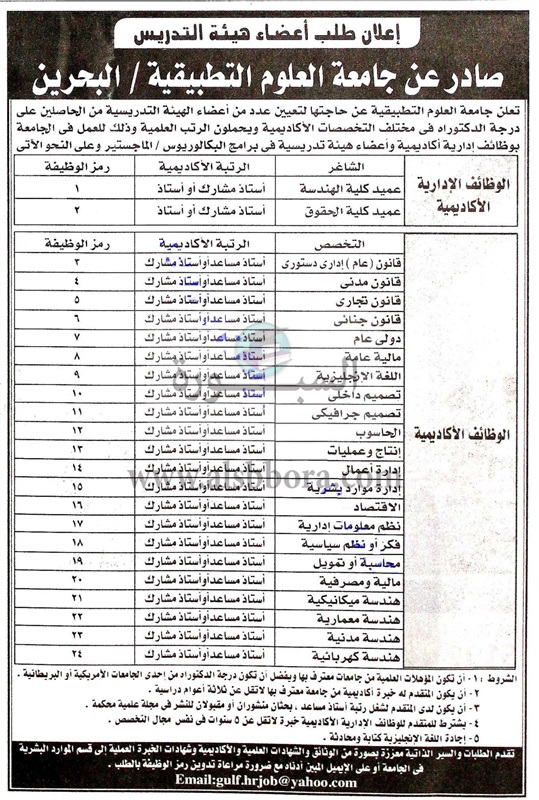 إعلان طلب أعضاء هيئة التدريس
صادر عن جامعة العلوم التطبيقية / البحرين
تعلن جامعة العلوم التطبيقية عن حاجتها لتعيين عدد من أعضاء الهيئة التدريسية من الحاصلين على
درجة الدكتوراه فى مختلف التخصصات الأكاديمية ويحملون الرتب العلمية وذلك للعمل فى الجامعة
بوظائف إدارية أكاديمية وأعضاء هيئة تدريسية فى برامج البكالوريوس / الماجستير وعلى النحو الأتى
الوظائف الإدارية الأكاديمية
الشاغر الرتبة الأكاديمية رمز الوظيفة
عميد كلية الهندسة أستاذ مشارك أو أستاذ ١
عميد كلية الحقوق أستاذ مشارك أو أستاذ ٢
الوظائف الأكاديمية
التخصص الرتبة الأكاديمية رمز الوظيفة
قانون (عام) إدارى دستورى أستاذ مساعد أو أستاذ مشارك ٣
قانون مدنى أستاذ مساعد أو أستاذ مشارك ٤
قانون تجارى أستاذ مساعد أو أستاذ مشارك ٥
قانون جنائى أستاذ مساعد أو أستاذ مشارك ٦
دولى عام أستاذ مساعد أو أستاذ مشارك ٧
مالية عامة أستاذ مساعد أو أستاذ مشارك ٨
اللغة الإنجليزية أستاذ مساعد أو أستاذ مشارك ٩
تصميم داخلى أستاذ مساعد أو أستاذ مشارك ١٠
تصميم جرافيكى أستاذ مساعد أو أستاذ مشارك ١١
الحاسوب أستاذ مساعد أو أستاذ مشارك ١٢
إنتاج وعمليات أستاذ مساعد أو أستاذ مشارك ١٣
إدارة أعمال أستاذ مساعد أو أستاذ مشارك ١٤
إدارة موارد بشرية أستاذ مساعد أو أستاذ مشارك ١٥
الاقتصاد أستاذ مساعد أو أستاذ مشارك ١٦
نظم معلومات إدارية أستاذ مساعد أو أستاذ مشارك ١٧
فكر أو نظم سياسية أستاذ مساعد أو أستاذ مشارك ١٨
محاسبة أو تمويل أستاذ مساعد أو أستاذ مشارك ١٩
مالية ومصرفية أستاذ مساعد أو أستاذ مشارك ٢٠
هندسة ميكانيكية أستاذ مساعد أو أستاذ مشارك ٢١
هندسة معمارية أستاذ مساعد أو أستاذ مشارك ٢٢
هندسة مدنية أستاذ مساعد أو أستاذ مشارك ٢٣
هندسة كهربائية أستاذ مساعد أو أستاذ مشارك ٢٤
السبورة
www.alsbbora.com
الشروط : ١- أن تكون المؤهلات العلمية من جامعات معترف بها ويفضل أن تكون درجة الدكتوراه من إحدى الجامعات الأمريكية أو البريطانية .
٢- أن يكون المتقدم له خبرة أكاديمية من جامعة معترف بها لاتقل عن ثلاثة أعوام دراسية .
٣- أن يكون لدى المتقدم لشغل رتبة أستاذ مساعد ، بحثان منشوران أو مقبولان للنشر فى مجلة علمية محكمة .
٤- يشترط للمتقدم للوظائف الإدارية الأكاديمية خبرة لاتقل عن ٥ سنوات فى نفس مجال التخصص .
٥- إجادة اللغة الإنجليزية كتابة ومحادثة .
تقدم الطلبات والسير الذاتية معززة بصورة من الوثائق والشهادات العلمية والأكاديمية وشهادات الخبرة العملية إلى قسم الموارد البشرية
فى الجامعة أو على الإيميل المبين أدناه مع ضرورة مراعاة تدوين رمز الوظيفة بالطلب .
Email:gulf.hrjob@yahoo.com